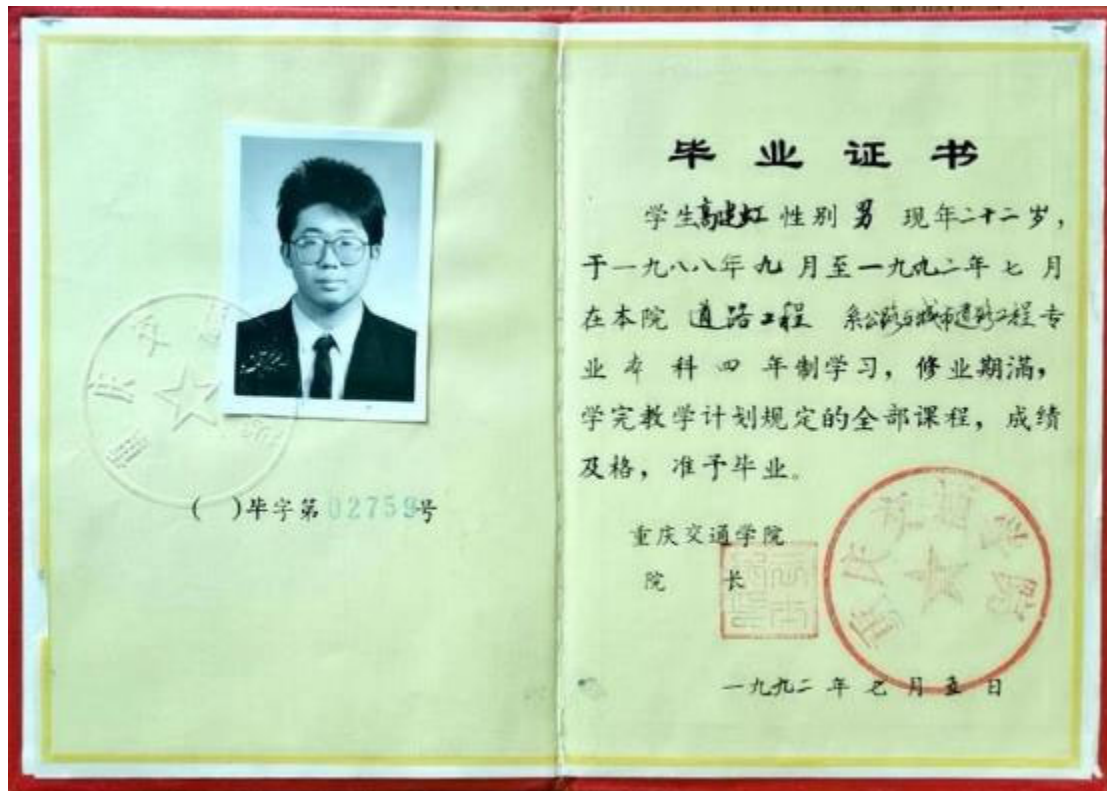 ( )毕字第02759号
毕业证书
学生高建虹性别 男 现年二十二岁，
于一九八八年九月至一九九二年七月
在本院 道路工程 系公路与城市道路工程专
业本科四年制学习，修业期满，
学完教学计划规定的全部课程，成绩
及格，准予毕业。
重庆交通学院
院长
重庆交通学院
一九九二年七月五日